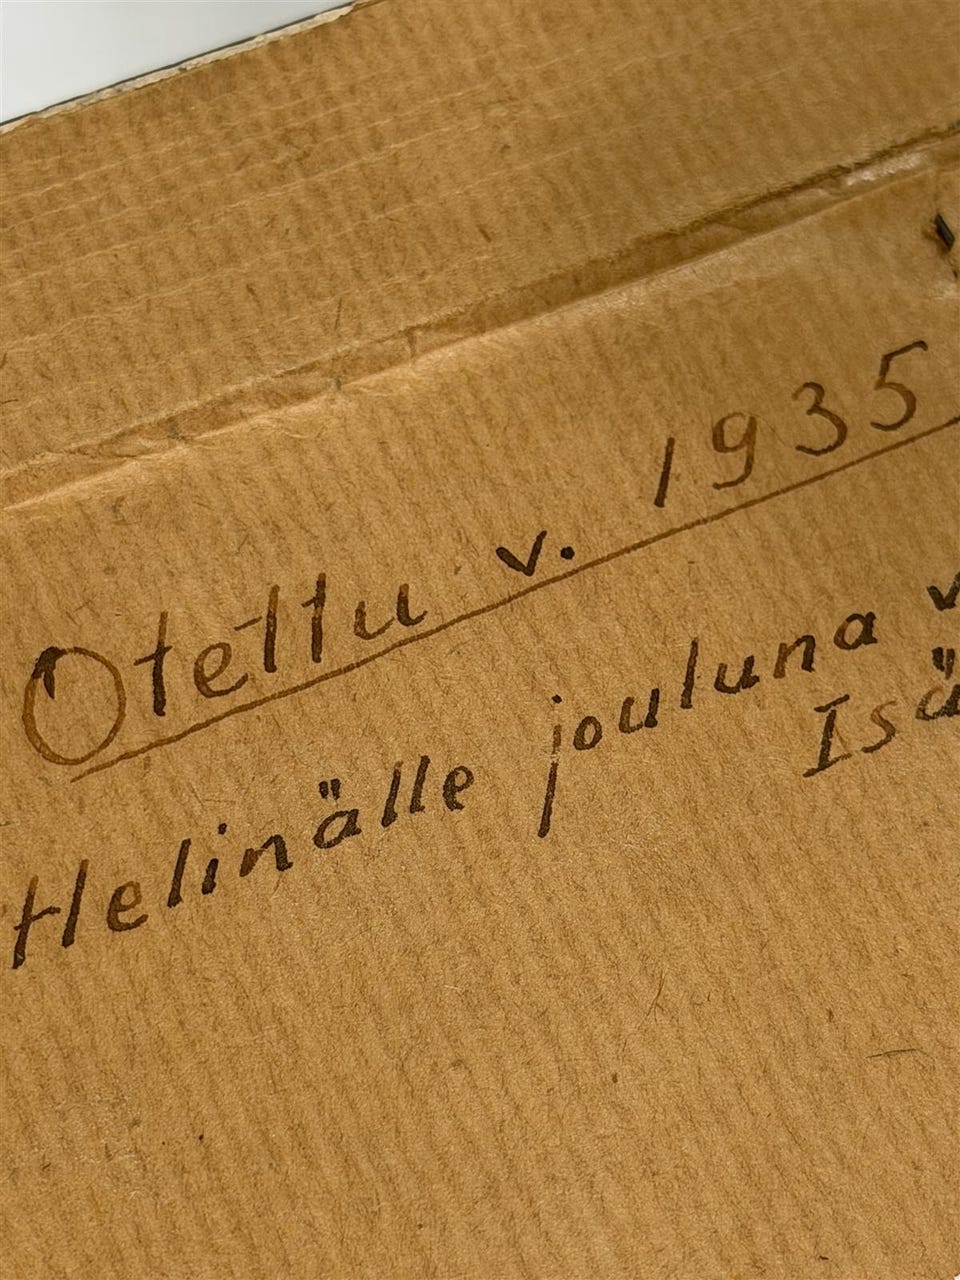 Otettu v. 1935
Helinälle jouluna v
Isä